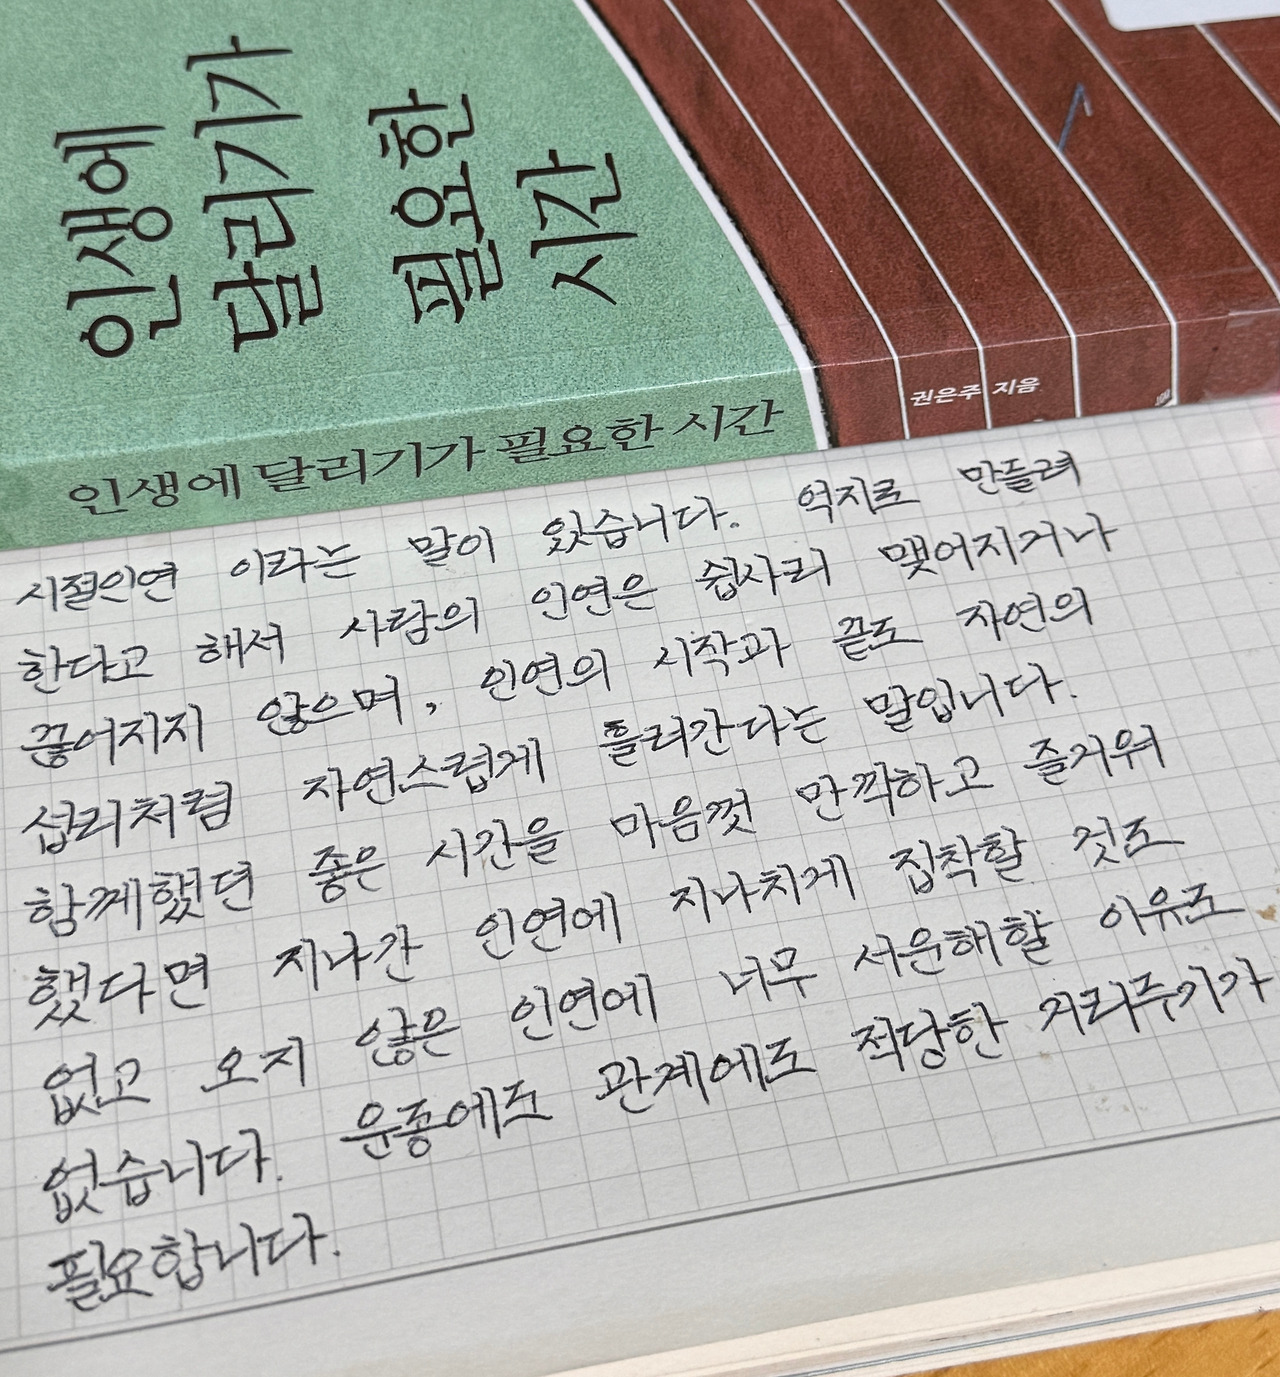 인생에
달리기가
필요한
시간
권은주 지음
인생에 달리기가 필요한 시간
시절인연 이라는 말이 있습니다. 억지로 만들려
한다고 해서 사람의 인연은 쉽사리 맺어지거나
끊어지지 않으며, 인연의 시작과 끝도 자연의
섭리처럼 자연스럽게 흘러간다는 말입니다.
함께했던 좋은 시간을 마음껏 만끽하고 즐거워
했다면 지나간 인연에 지나치게 집착할 것도
없고 오지 않은 인연에 너무 서운해할 이유도
없습니다. 운동에도 관계에도 적당한 거리두기가
필요합니다.